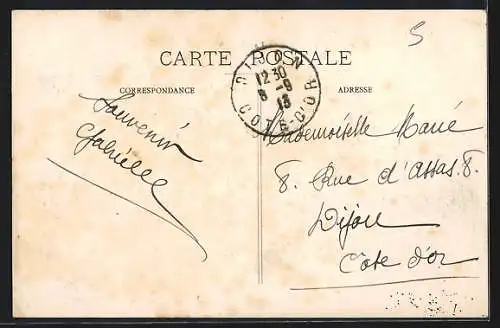 5
CARTE POSTALE
CORRESPONDANCE
ADRESSE
DIJON
12 30
8 -9
13
COTE-D'OR
Souvenir
Gabrielle
Mademoiselle Marié
8. Rue d'Assas. 8.
Dijon
Côte d'or